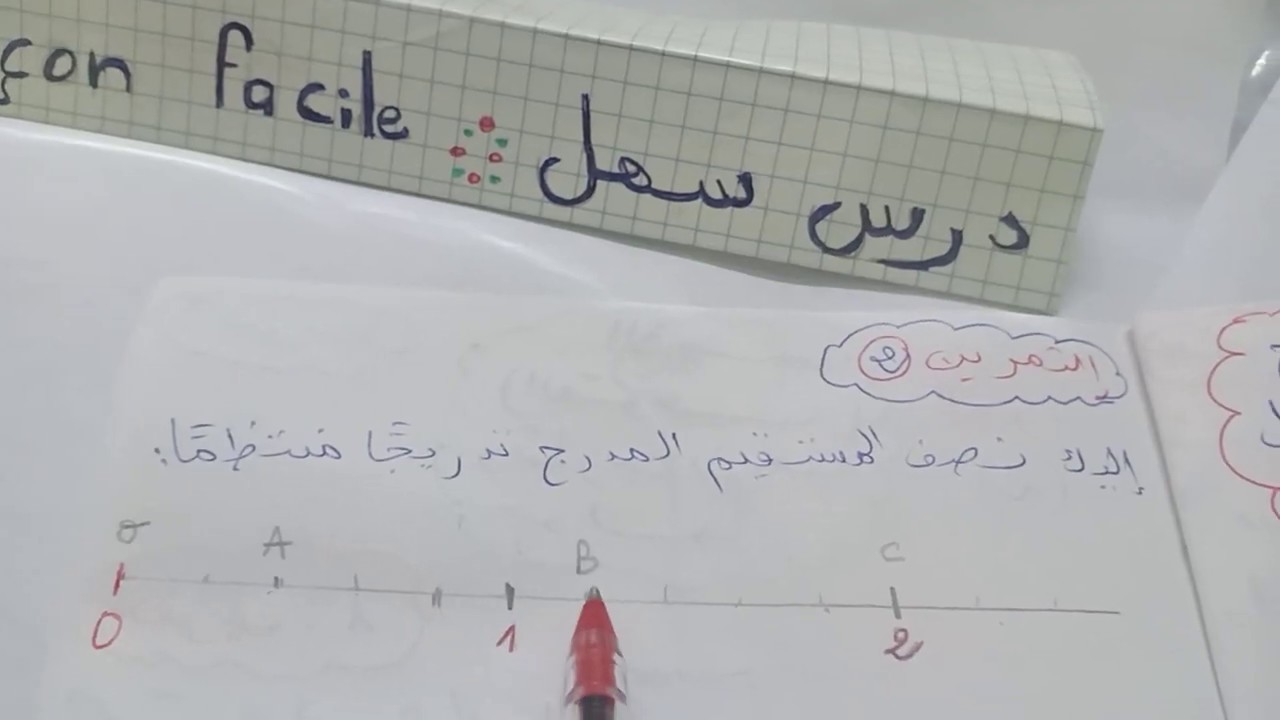 çon facile درس سهل
التمرين 2
إليك نصف المستقيم المدرج تدريجًا منتظمًا:
O A B C
0 1 2